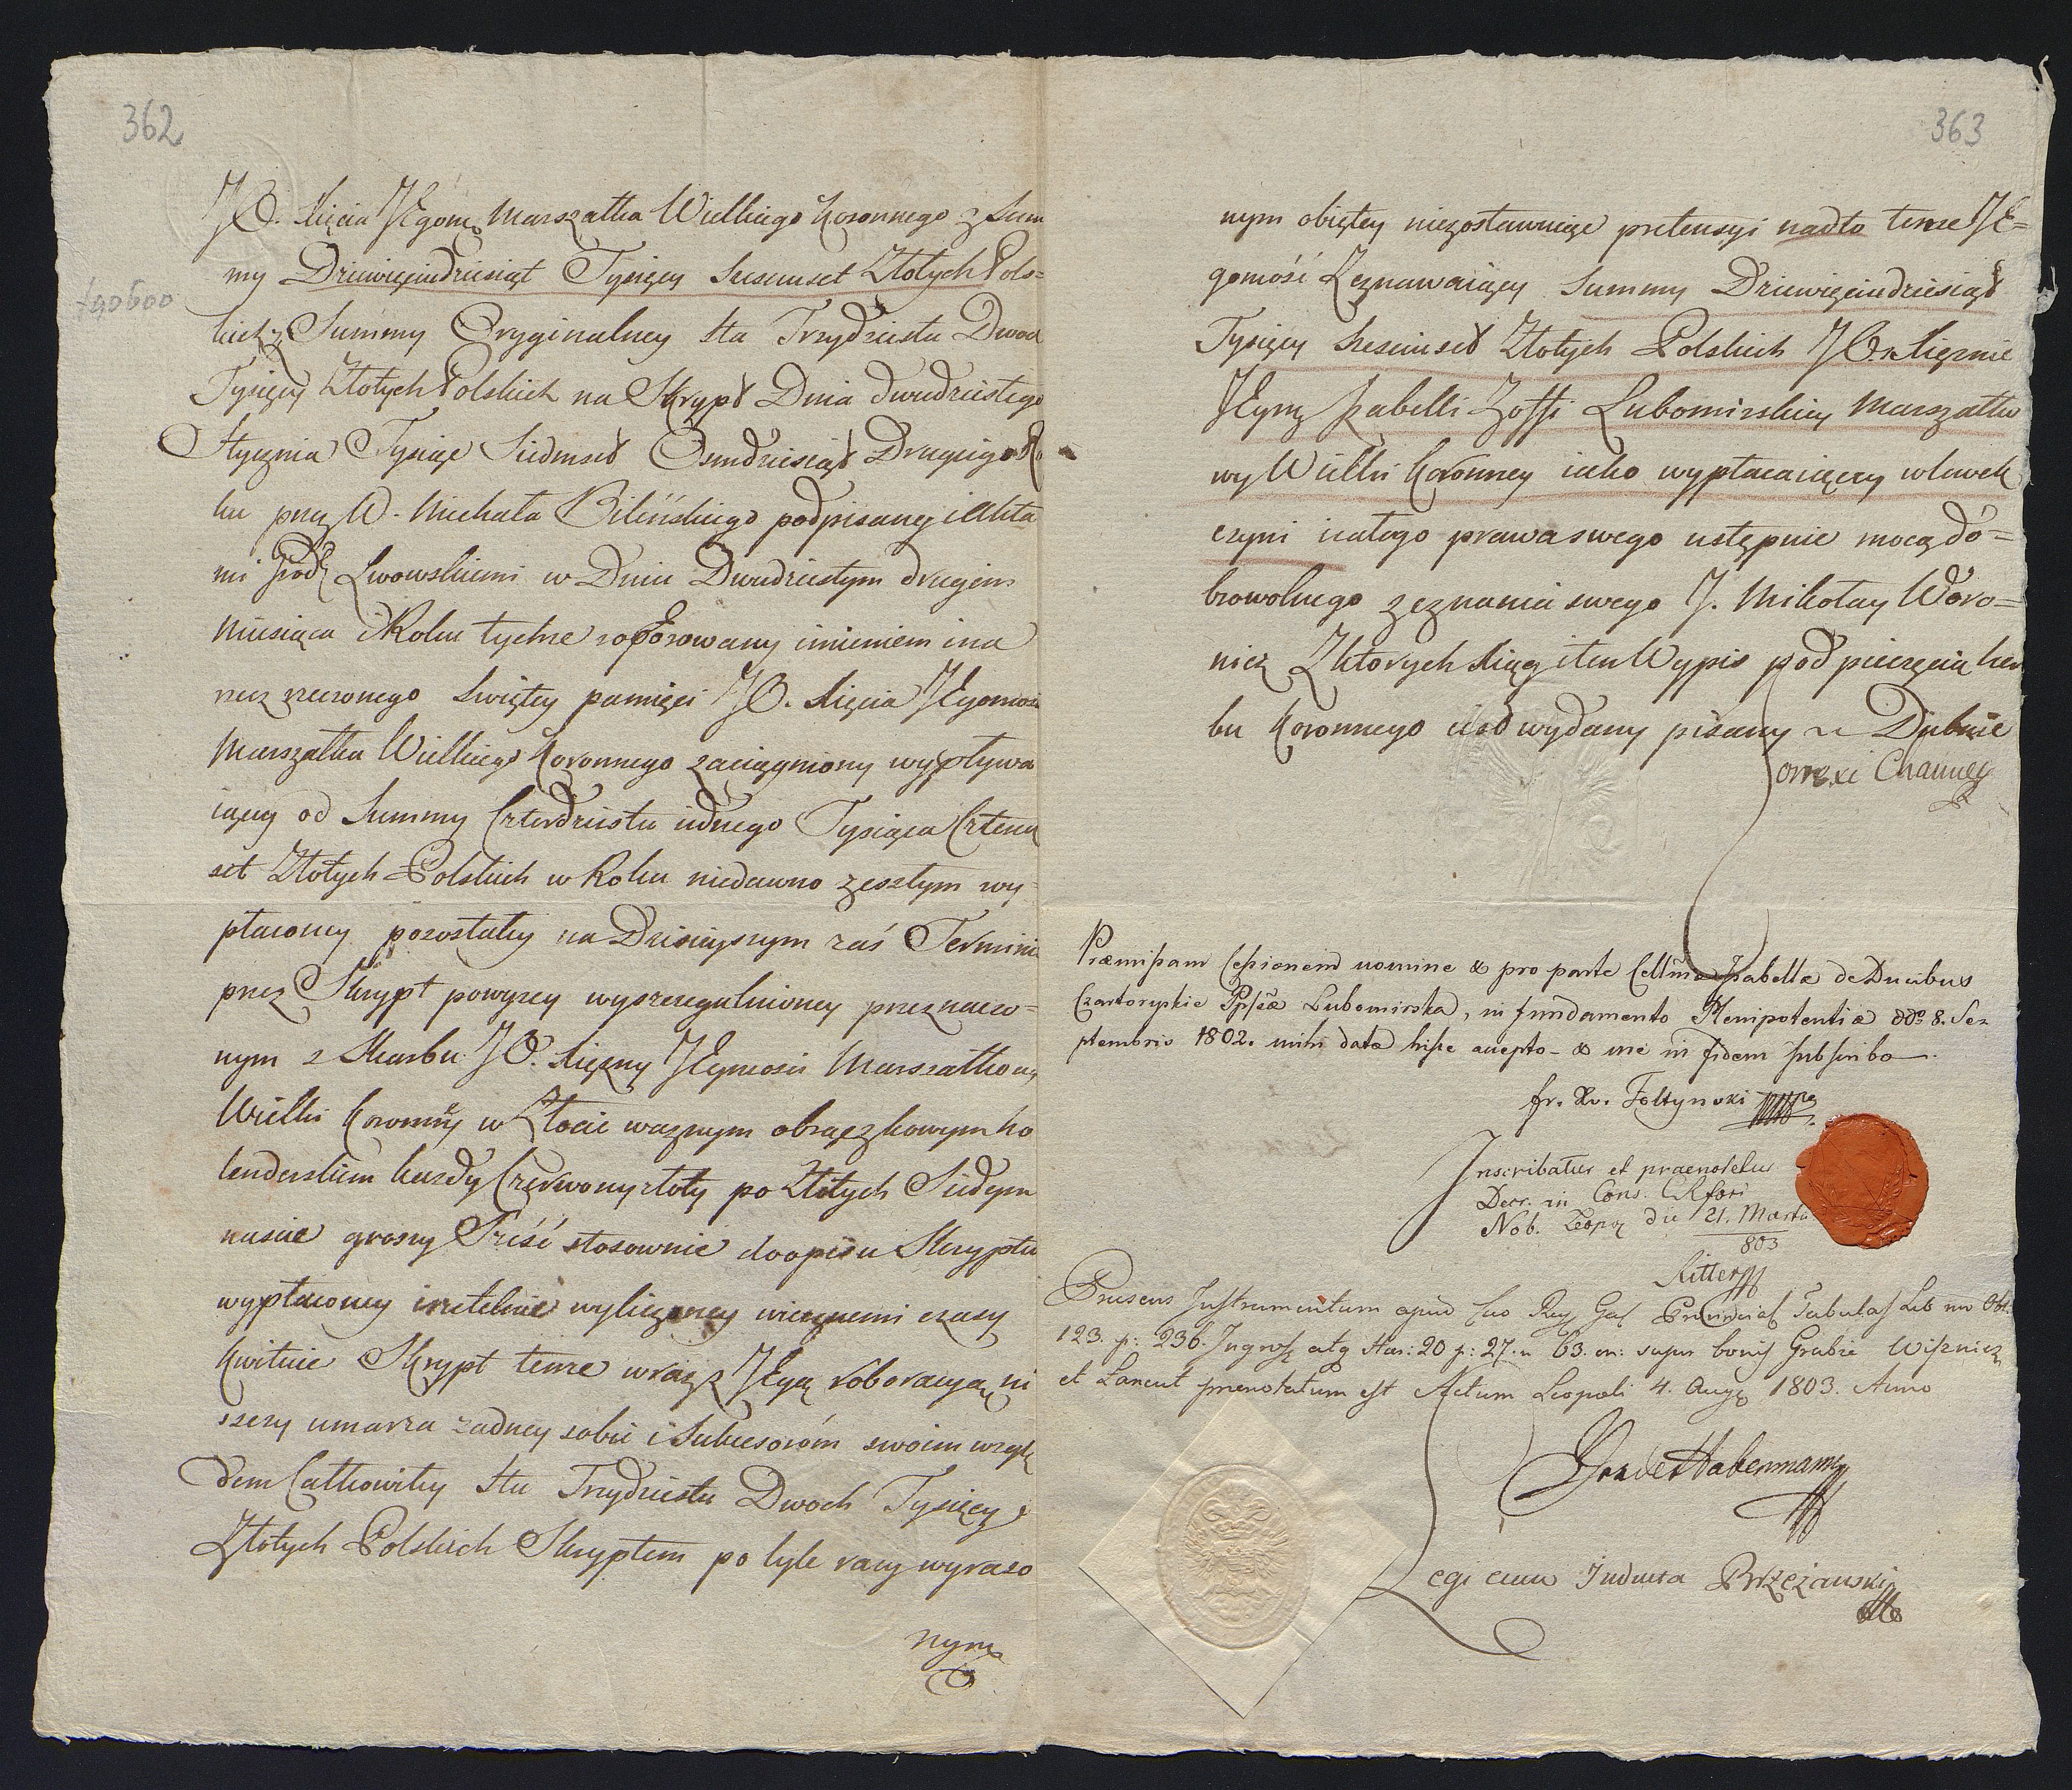 362
JO. Xięcia JEgomę Marszałka Wielkiego Koronnego z Sum
my Dziewięciudziesiąt Tysięcy Sześciuset Złotych Pols-
kich z Summy Oryginalney sta Trzydziestu Dwoch
90600
Tysięcy Złotych Polskich na Skrypt Dnia dwudziestego
Stycznia Tysiąc Siedmset Osmdziesiąt Drugiego Ro
ku przez W. Michała Bilińskiego podpisaney i Akta
mi Grodz Lwowskiemi w Dniu Dwudziestym drugim
Miesiąca i Roku tychże roborowany imieniem i na
rzecz rzeczonego Swiętey pamięci JO. Xięcia JEgomości
Marszałka Wielkiego Koronnego zaciągniony wypływa
iącey od Summy Czterdziestu iednego Tysiąca Czterech
set Złotych Polskich w Roku niedawno zeszłym wy-
płaconey pozostałey na Dzisieyszym zaś Terminie
przez Skrypt powyżey wyszczegulnioney przeznaczo-
nym z Skarbu JO. Xiężny JEymości Marszałkowy
Wielki Koronny w Złocie ważnym obrączkowym ho
lenderskim każdy Czerwony złoty po Złotych Siedym
nascie groszy Trzść stosownie do opisu Skryptu
wypłaconey i rzetelnie wyliczoney wiecznemi czasy
kwituie Skrypt tenże wraz z JEgą roboracyą ni
szczy umarza żadney sobie i Sukcesorom swoim wzglę
dem Całkowitey Stu Trzydziestu Dwoch Tysięcy
Złotych Polskich Skryptem po tyle razy wyrażo
nym
363
nym obiętey niezostawuiąc pretensyi nadto tenże JE=
gomość Zeznawaiący Summy Dziewięciudziesiąt
Tysięcy Szesciuset Złotych Polskich JO. Xiężnie
JEymę Izabelli Zofii Lubomirskiey Marszałko
wy Wielki Koronney iako wypłacaiącey wlewek
czyni i całego prawa swego ustępuie mocą do=
browolnego zeznania swego J. Mikołay Woro=
nicz Z których Xiąg i ten Wypis pod pieczęcią her
bu Koronnego iest wydany pisany w Dubnie
Præmissam Cessionem nomine & pro parte Cellmæ Isabellæ de Ducibus
Czartoryskie Ppssa Lubomirska, in fundamento Plenipotentiæ ddo 8. Se=
ptembris 1802. mihi datæ hisce accepto & me in fidem subscribo.
fr. Xv. Foltynski mpa
Inscribatur et praenotetur
Decr. in Cons. CR fori
Nob. Leopol die 21. Martii
803
Ritter
Præsens Instrumentum apud Cæs Reg Gal Provincial Tabulas Lib nov Obl.
123. p: 236. Ingross atq Har: 20 p: 27. n 63. on: super bonis Grabie Wisznicz
et Lancut prenotatum est Actum Leopoli 4. Aug 1803. Anno
Habermann
Legi cum Inducta Brzezanski